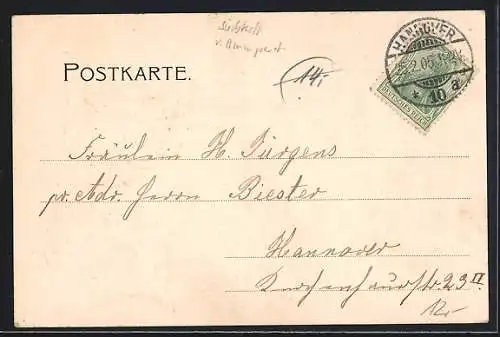 Südstadt
POSTKARTE.
14,-
HANNOVER
2.05
* 10 a
DEUTSCHES REICH
Fräulein H. Jürgens
pr. Adr. Herrn Biester
Hannover
23 II
12,-